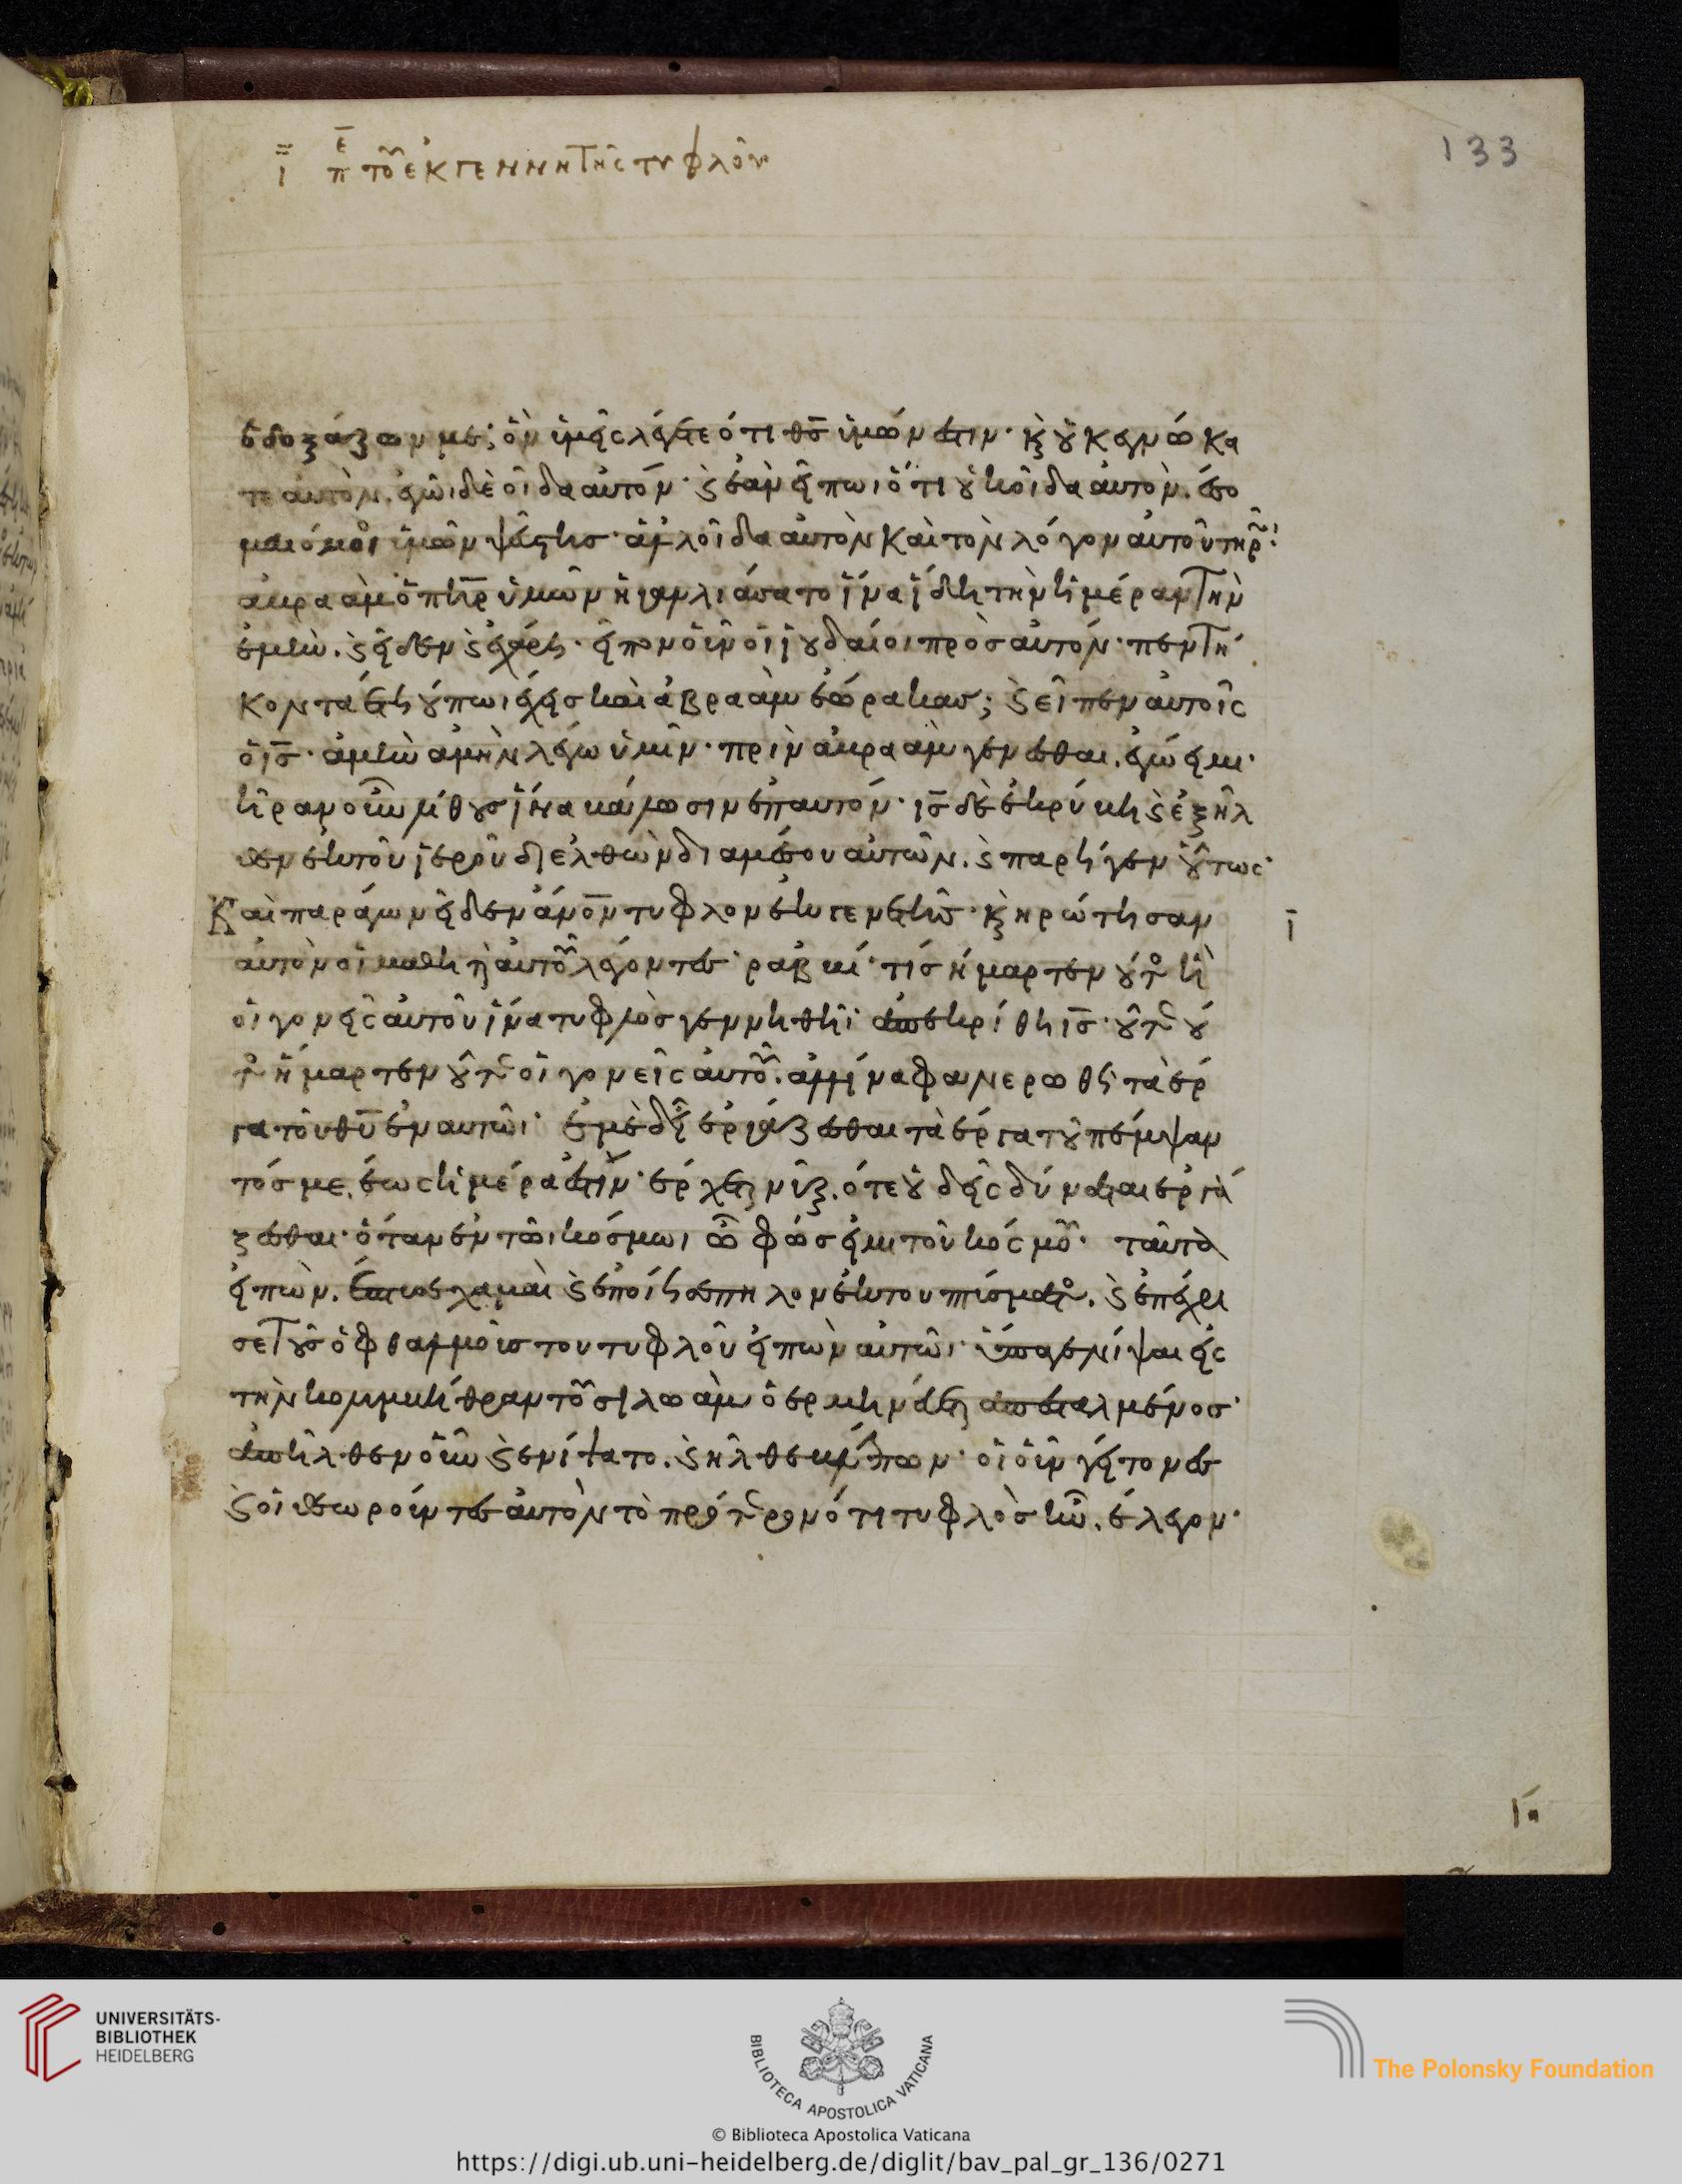 ῑ πε τοῦ ἐκ γεννητῆς τυφλοῦ
133
ὁ δοξάζων με· ὃν ὑμεῖς λέγετε ὅτι θς ὑμῶν ἐστιν· κ οὐκ ἐγνώκα
τε αὐτὸν. ἐγὼ δὲ οἶδα αὐτόν· κ ἐὰν εἴπω ὅτι οὐκ οἶδα αὐτὸν. ἔσο
μαι ὅμοι ὑμῶν ψεύστης· ἀλλ οἶδα αὐτὸν καὶ τὸν λόγον αὐτοῦ τηρῶ·
ἀβραὰμ ὁ πηρ ὑμῶν ἠγαλλιάσατο ἵνα ἴδη τὴν ἡμέραν τὴν
ἐμὴν. κ εἶδεν κ ἐχάρη· εἶπον οὖν οἱ ἰουδαῖοι πρὸς αὐτόν· πεντή
κοντα ἔτη οὔπω ἔχεις καὶ ἀβραὰμ ἑώρακας; κ εἶπεν αὐτοῖς
ὁ ις· ἀμὴν ἀμὴν λέγω ὑμῖν· πρὶν ἀβραὰμ γενέσθαι. ἐγώ εἰμι·
ἦραν οὖν λίθους ἵνα βάλωσιν ἐπ αυτόν· ις δὲ ἐκρύβη κ ἐξῆλ
θεν ἐκ τοῦ ἱεροῦ διελθὼν δια μέσου αὐτῶν. κ παρῆγεν οὕτως·
Καὶ παράγων εἶδεν ἄνον τυφλον ἐκ γενετῆς· κ ἠρώτησαν
ῑ
αὐτὸν οἱ μαθηταὶ αὐτοῦ λέγοντες· ραββί· τίς ἥμαρτεν οὗτος ἢ
οἱ γονεῖς αὐτοῦ ἵνα τυφλὸς γεννηθῆ· ἀπεκρίθη ις· οὔτε οὗ
τος ἥμαρτεν οὔτε οἱ γονεῖς αὐτοῦ. ἀλλ ίνα φανερωθῆ τὰ ἔρ
γα τοῦ θυ ἐν αυτῶι· ἐμὲ δεῖ ἐργάζεσθαι τὰ ἔργα τοῦ πέμψαν
τός με. ἕως ἡμέρα ἐστίν· ἔρχεται νὺξ. ὅτε οὐδεὶς δύναται ἐργά
ζεσθαι· ὅταν ἐν τῶι κόσμωι ὦ φῶς εἰμι τοῦ κόσμου· ταῦτα
εἰπὼν. ἔπτυσε χαμαὶ κ ἐποίησε πηλον ἐκ του πτύσματος. κ ἐπέχρι
σε τοὺς ὀφθαλμοὺς του τυφλοῦ εἰπὼν αὐτῶι· ὕπαγε νίψαι εἰς
τὴν κολυμβήθραν τοῦ σιλωὰμ ὃ ἑρμηνεύεται ἀπεσταλμένος·
ἀπῆλθεν οὖν κ ἐνίψατο. κ ἦλθε βλέπων· οἱ οὖν γείτονες
κ οἱ θεωροῦντες αὐτὸν τὸ πρότερον ὅτι τυφλὸς ἦν. ἔλεγον·
UNIVERSITÄTS-
BIBLIOTHEK
HEIDELBERG
BIBLIOTECA APOSTOLICA VATICANA
The Polonsky Foundation
© Biblioteca Apostolica Vaticana
https://digi.ub.uni-heidelberg.de/diglit/bav_pal_gr_136/0271